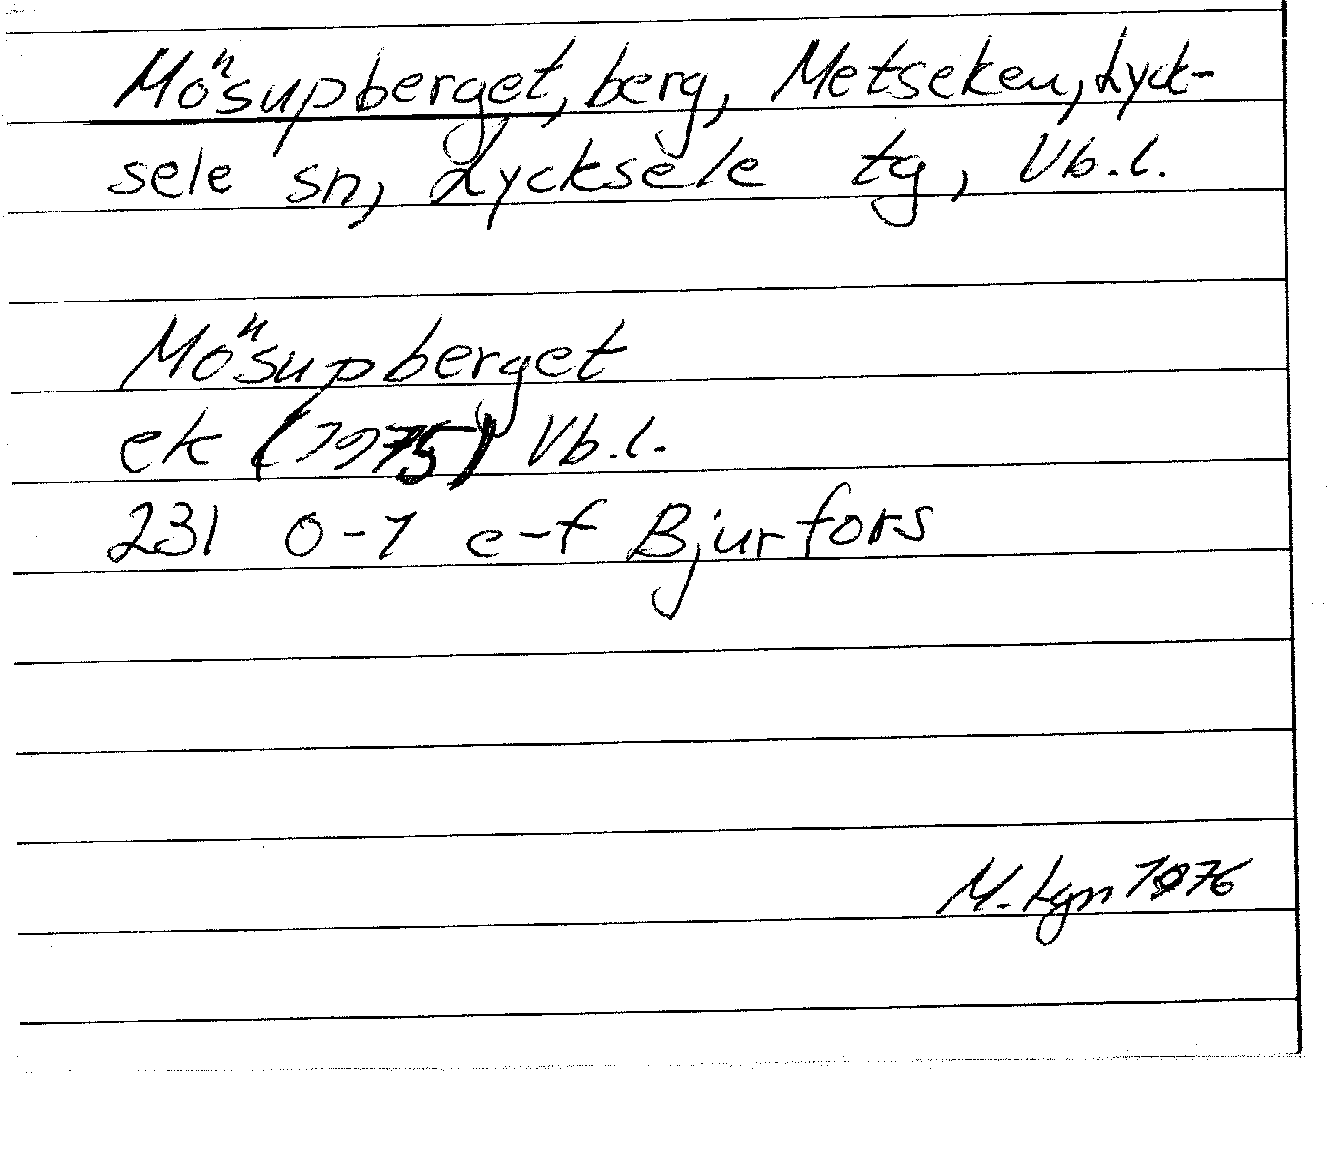 Mösupberget, berg, Metseken, Lyck-
sele sn, Lycksele tg, Vb.l.
Mösupberget
ek (1975) Vb.l.
231 0-1 e-f Bjurfors
M. Lgn 1976